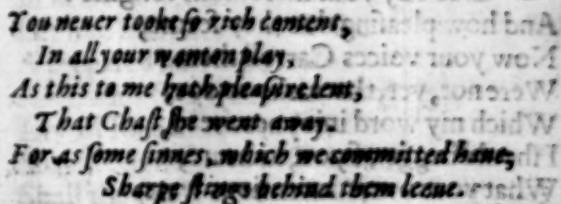 You neuer tooke ſo rich content,
In all your wanton play,
As this to me hath pleaſure lent,
That Chaſt ſhe went away.
For as ſome ſinnes, which we committed haue,
Sharpe ſtings behind them leaue.